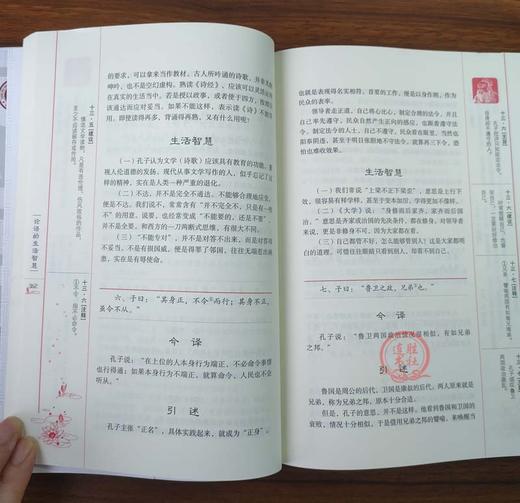 的要求，可以拿来当作教材。古人所吟诵的诗歌，并非无病
呻吟，也不是空幻虚构。熟读《诗经》，应该可以灵活运用
在真实的生活当中。若是授以政事，或者使于四方，按理应
该通达而应对妥当。如果不能这样，表示读《诗》不切实
用。即使读得再多、背诵得再熟，又有什么用呢？
生活智慧
（一）孔子认为文学（诗歌）应该具有教育的功能，重
视人伦道德的发扬。现代从事文学写作的人，似乎忘记了这
样的精神，实在是人类一种严重的退化。
（二）“不达”不完全是不通达，不能够合理地应变，
便是不达。我们说不，常常含有“并不完全不，只是有一些
不”的用意。说要，也经常变成“不能要的，还是不要”
的
示意。和西方的一刀两断式思维，有很大不同。
（三）“不能专对”，并不是对答不出来，而是对答得
不妥当。不是有损国威，便是得罪了邻国。往往无端惹出祸
患，实在是有辱使命。
六、子曰：“其身正，不令①而行；其身不正，
虽令不从。”
今译
孔子说：“在上位的人本身行为端正，不必命令事情
也行得通；如果本身行为不端正，就算命令，人民也不会
听从。”
引述
孔子主张“正名”，具体实践起来，就成为“正身”，
十三·五【建议】
十三·六【注释】
①令，指不必命令。
论语的生活智慧
也就是表现得名实相符。首要的工作，便是以身作则，作为
民众的表率。
领导者走正道，自己将心比心，制定合理的法令，并且
自己率先遵守，民众自然产生正向的感应，也跟着遵守法
令。制定法令的人士，自己不遵守，民众看在眼里，当然也
阳奉阴违，甚至于明目张胆地不守法令。就算再三下令，恐
怕也难收效果。
生活智慧
（一）我们常说“上梁不正下梁歪”，意思是上行下
效，领导易有样学样，甚至于变本加厉，学得更加不像样。
（二）《大学》说：“身修而后家齐，家齐而后国
治。”意思是齐家或治国的先决条件，都在修身。所以治国
者，更是非修身不可，因为大家都在看。
（三）自己都管不好，怎么能够管别人？这是大家都明
白的道理。可惜往往眼睛只看到别人，却看不到自己。
七、子曰：“鲁卫之政，兄弟①也。”
今译
孔子说：“鲁卫两国政治情况很相似，有如兄弟
之邦。”
引述
鲁国是周公的后代，卫国是康叔的后代。两人原来就是
兄弟，称为兄弟之邦，原本十分合适。
但是，孔子的意思，并不是这样。他看到鲁国和卫国的
衰败，情况十分相似，于是借用兄弟之邦的譬喻，来感叹当
十三·六【建议】
十三·七【注释】